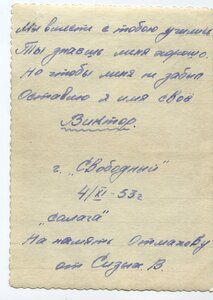 Мы вместе с тобою учились
Ты знаешь меня хорошо.
Но чтобы меня не забыл
Оставлю я имя своё
Виктор.
г. "Свободный"
4/XI-53г
"салага"
На память Отмахову
от Сизых. В.